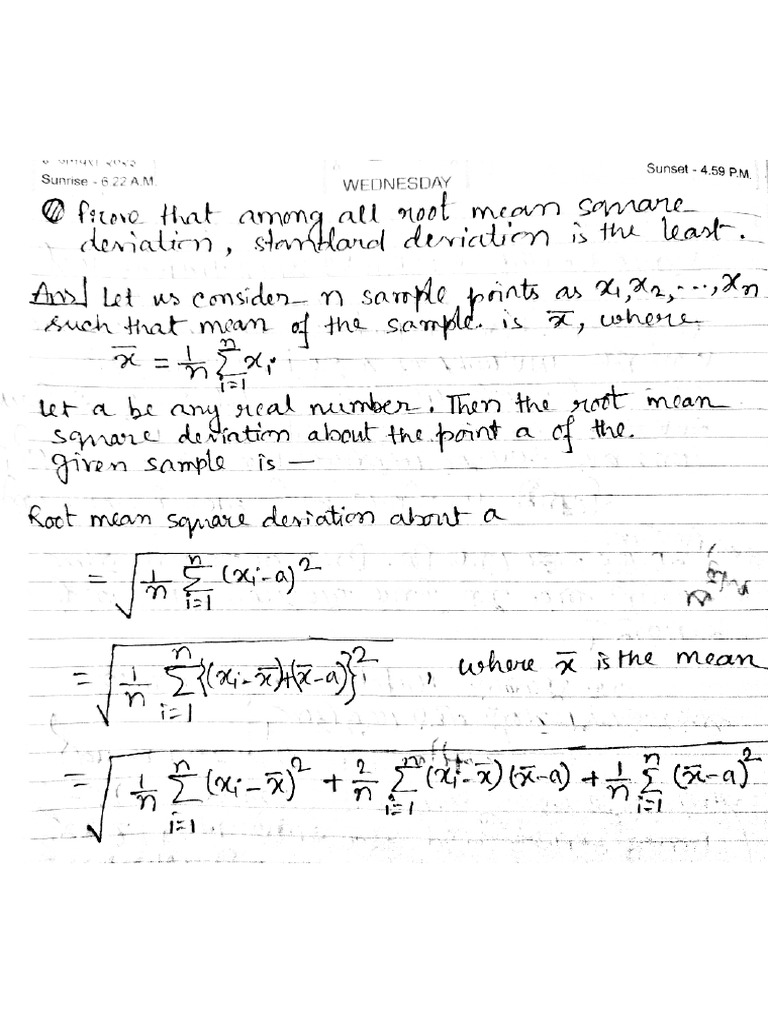 Sunrise - 6.22 A.M.
WEDNESDAY
Sunset - 4.59 P.M.
Prove that among all root mean square
deviation, standard deviation is the least.
Ans] Let us consider n sample points as x₁, x₂, ..., xₙ
such that mean of the sample. is x̄, where
x̄ = 1/n ∑ᵢ₌₁ⁿ xᵢ.
Let a be any real number. Then the root mean
square deviation about the point a of the.
given sample is —
Root mean square deviation about a
= √(1/n ∑ᵢ₌₁ⁿ (xᵢ-a)²)
= √(1/n ∑ᵢ₌₁ⁿ {(xᵢ-x̄)+(x̄-a)}²) , where x̄ is the mean
= √(1/n ∑ᵢ₌₁ⁿ (xᵢ-x̄)² + 2/n ∑ᵢ₌₁ⁿ (xᵢ-x̄)(x̄-a) + 1/n ∑ᵢ₌₁ⁿ (x̄-a)²)